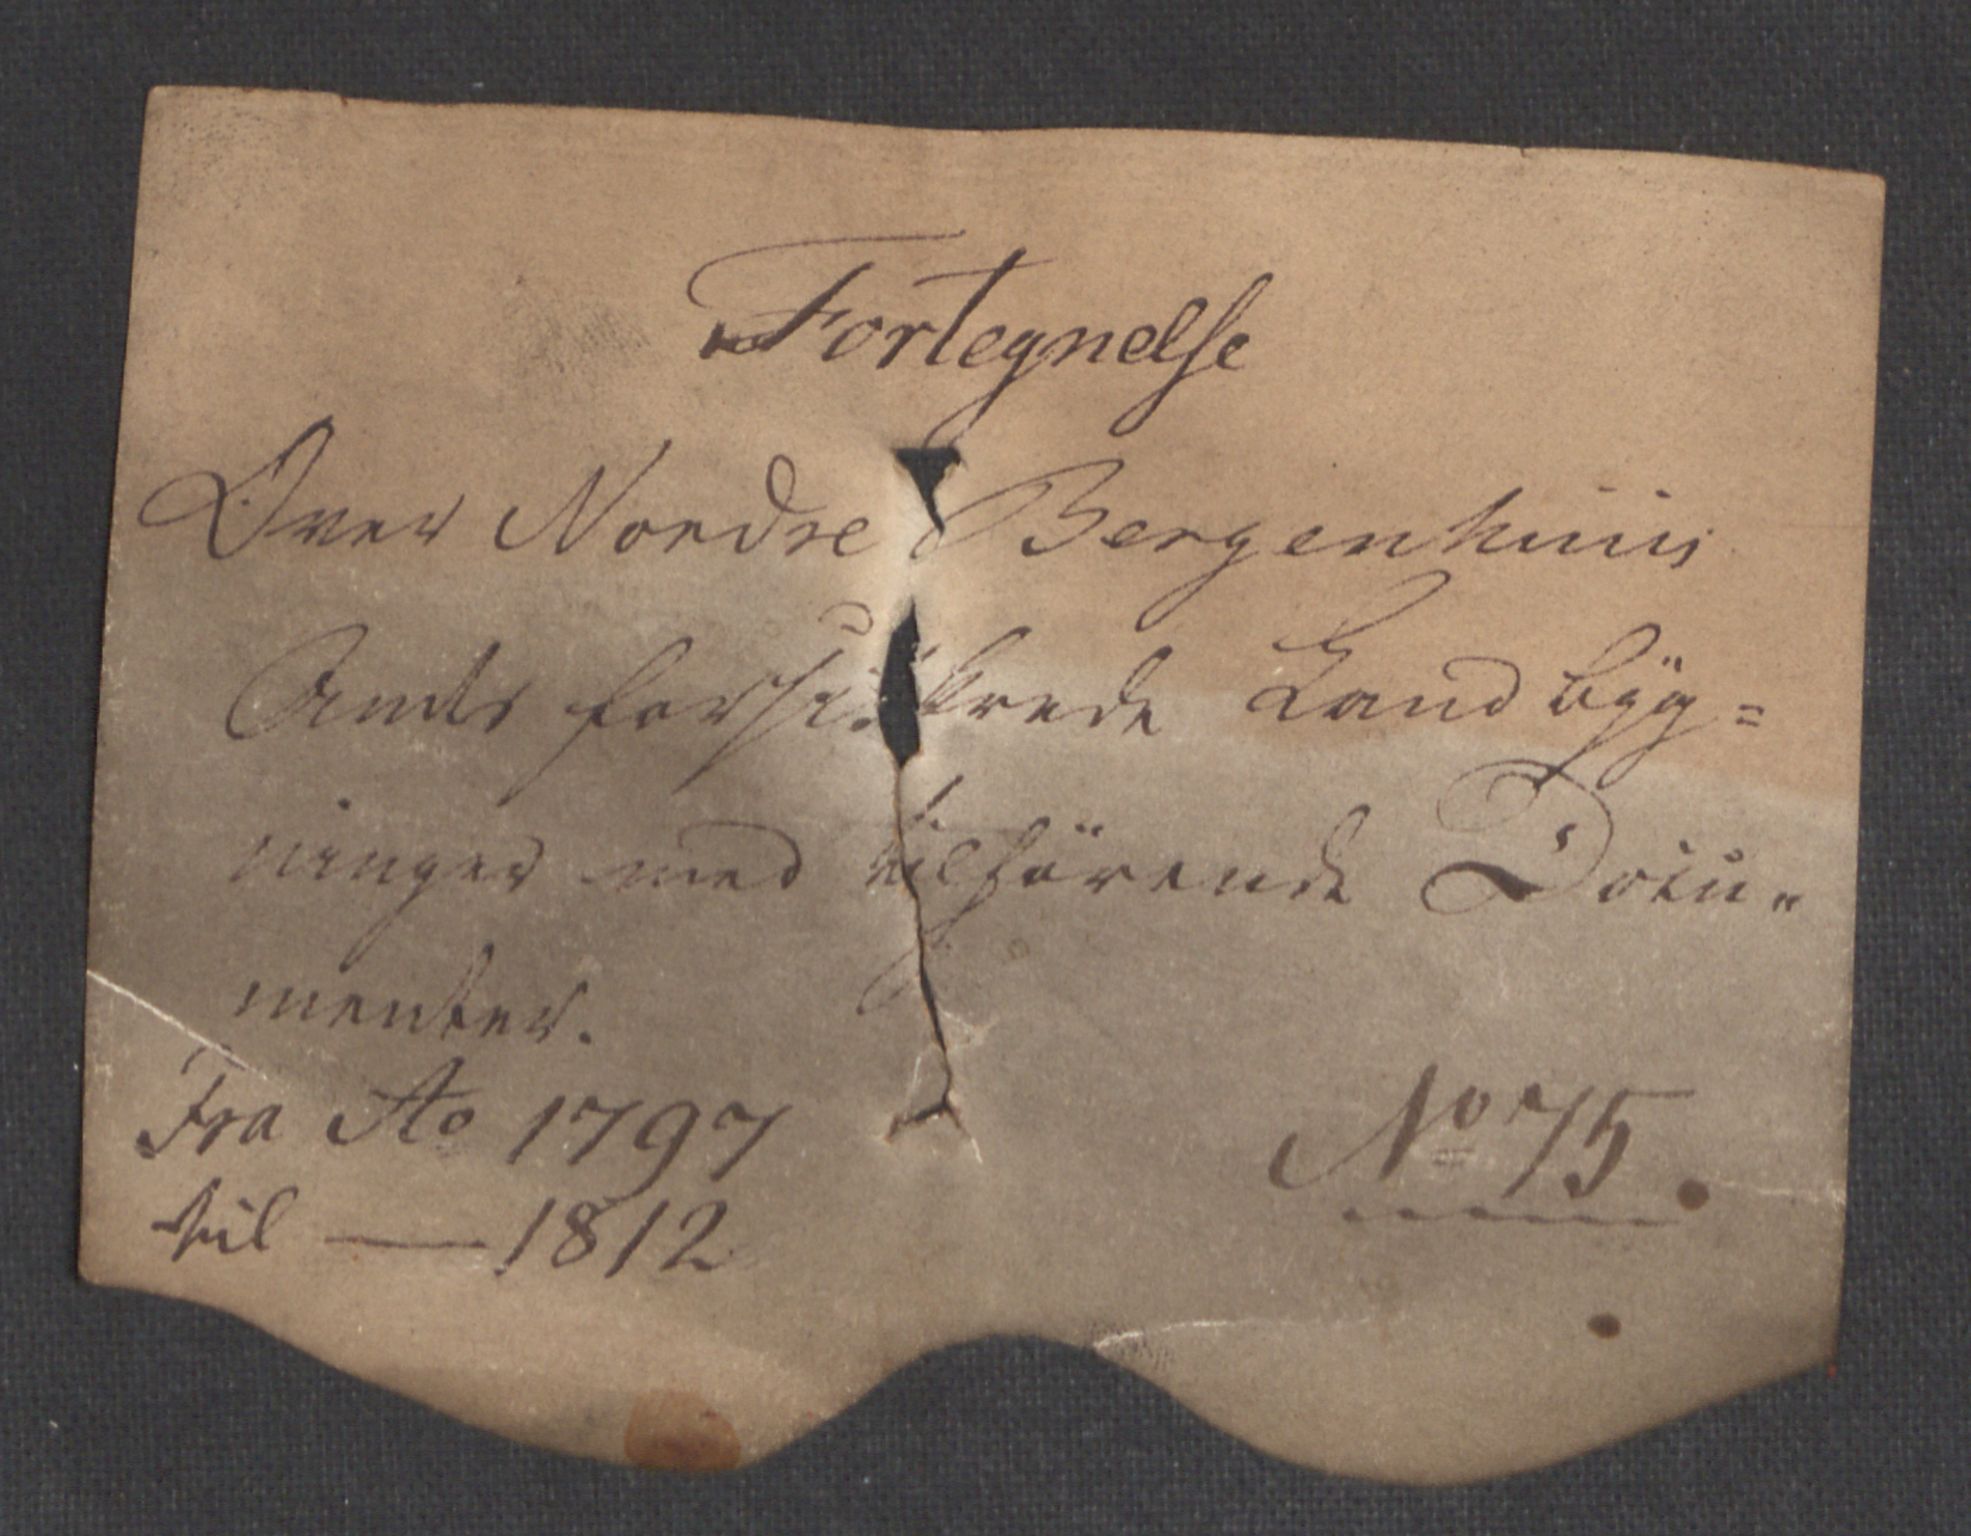 Fortegnelse
Over Nordre Bergenhuus
Amts forsikkrede Land byg=
ninger med tilhörende Docu„
menter.
Fra Ao 1797
til — 1812
No 75.